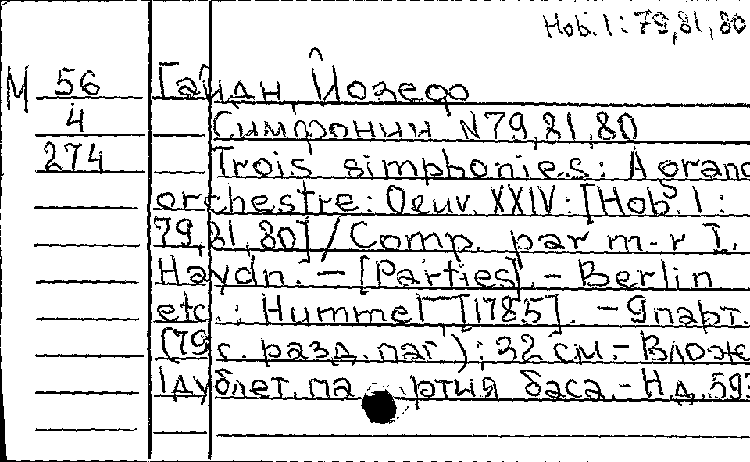 Hob. I: 79, 81, 80
М 56 Гайдн, Йозеф
4 Симфонии N 79, 81, 80
274 Trois simphonies: A grand
orchestre: Oeuv. XXIV: [Hob. I:
79, 81, 80] / Comp. par m-r I.
Haydn. - [Parties]. - Berlin
etc.: Hummel, [1785]. - 9 парт.
(79 с. разд. паг.); 32 см. - Влож
1 дублет. партия баса. - Н.д. 593